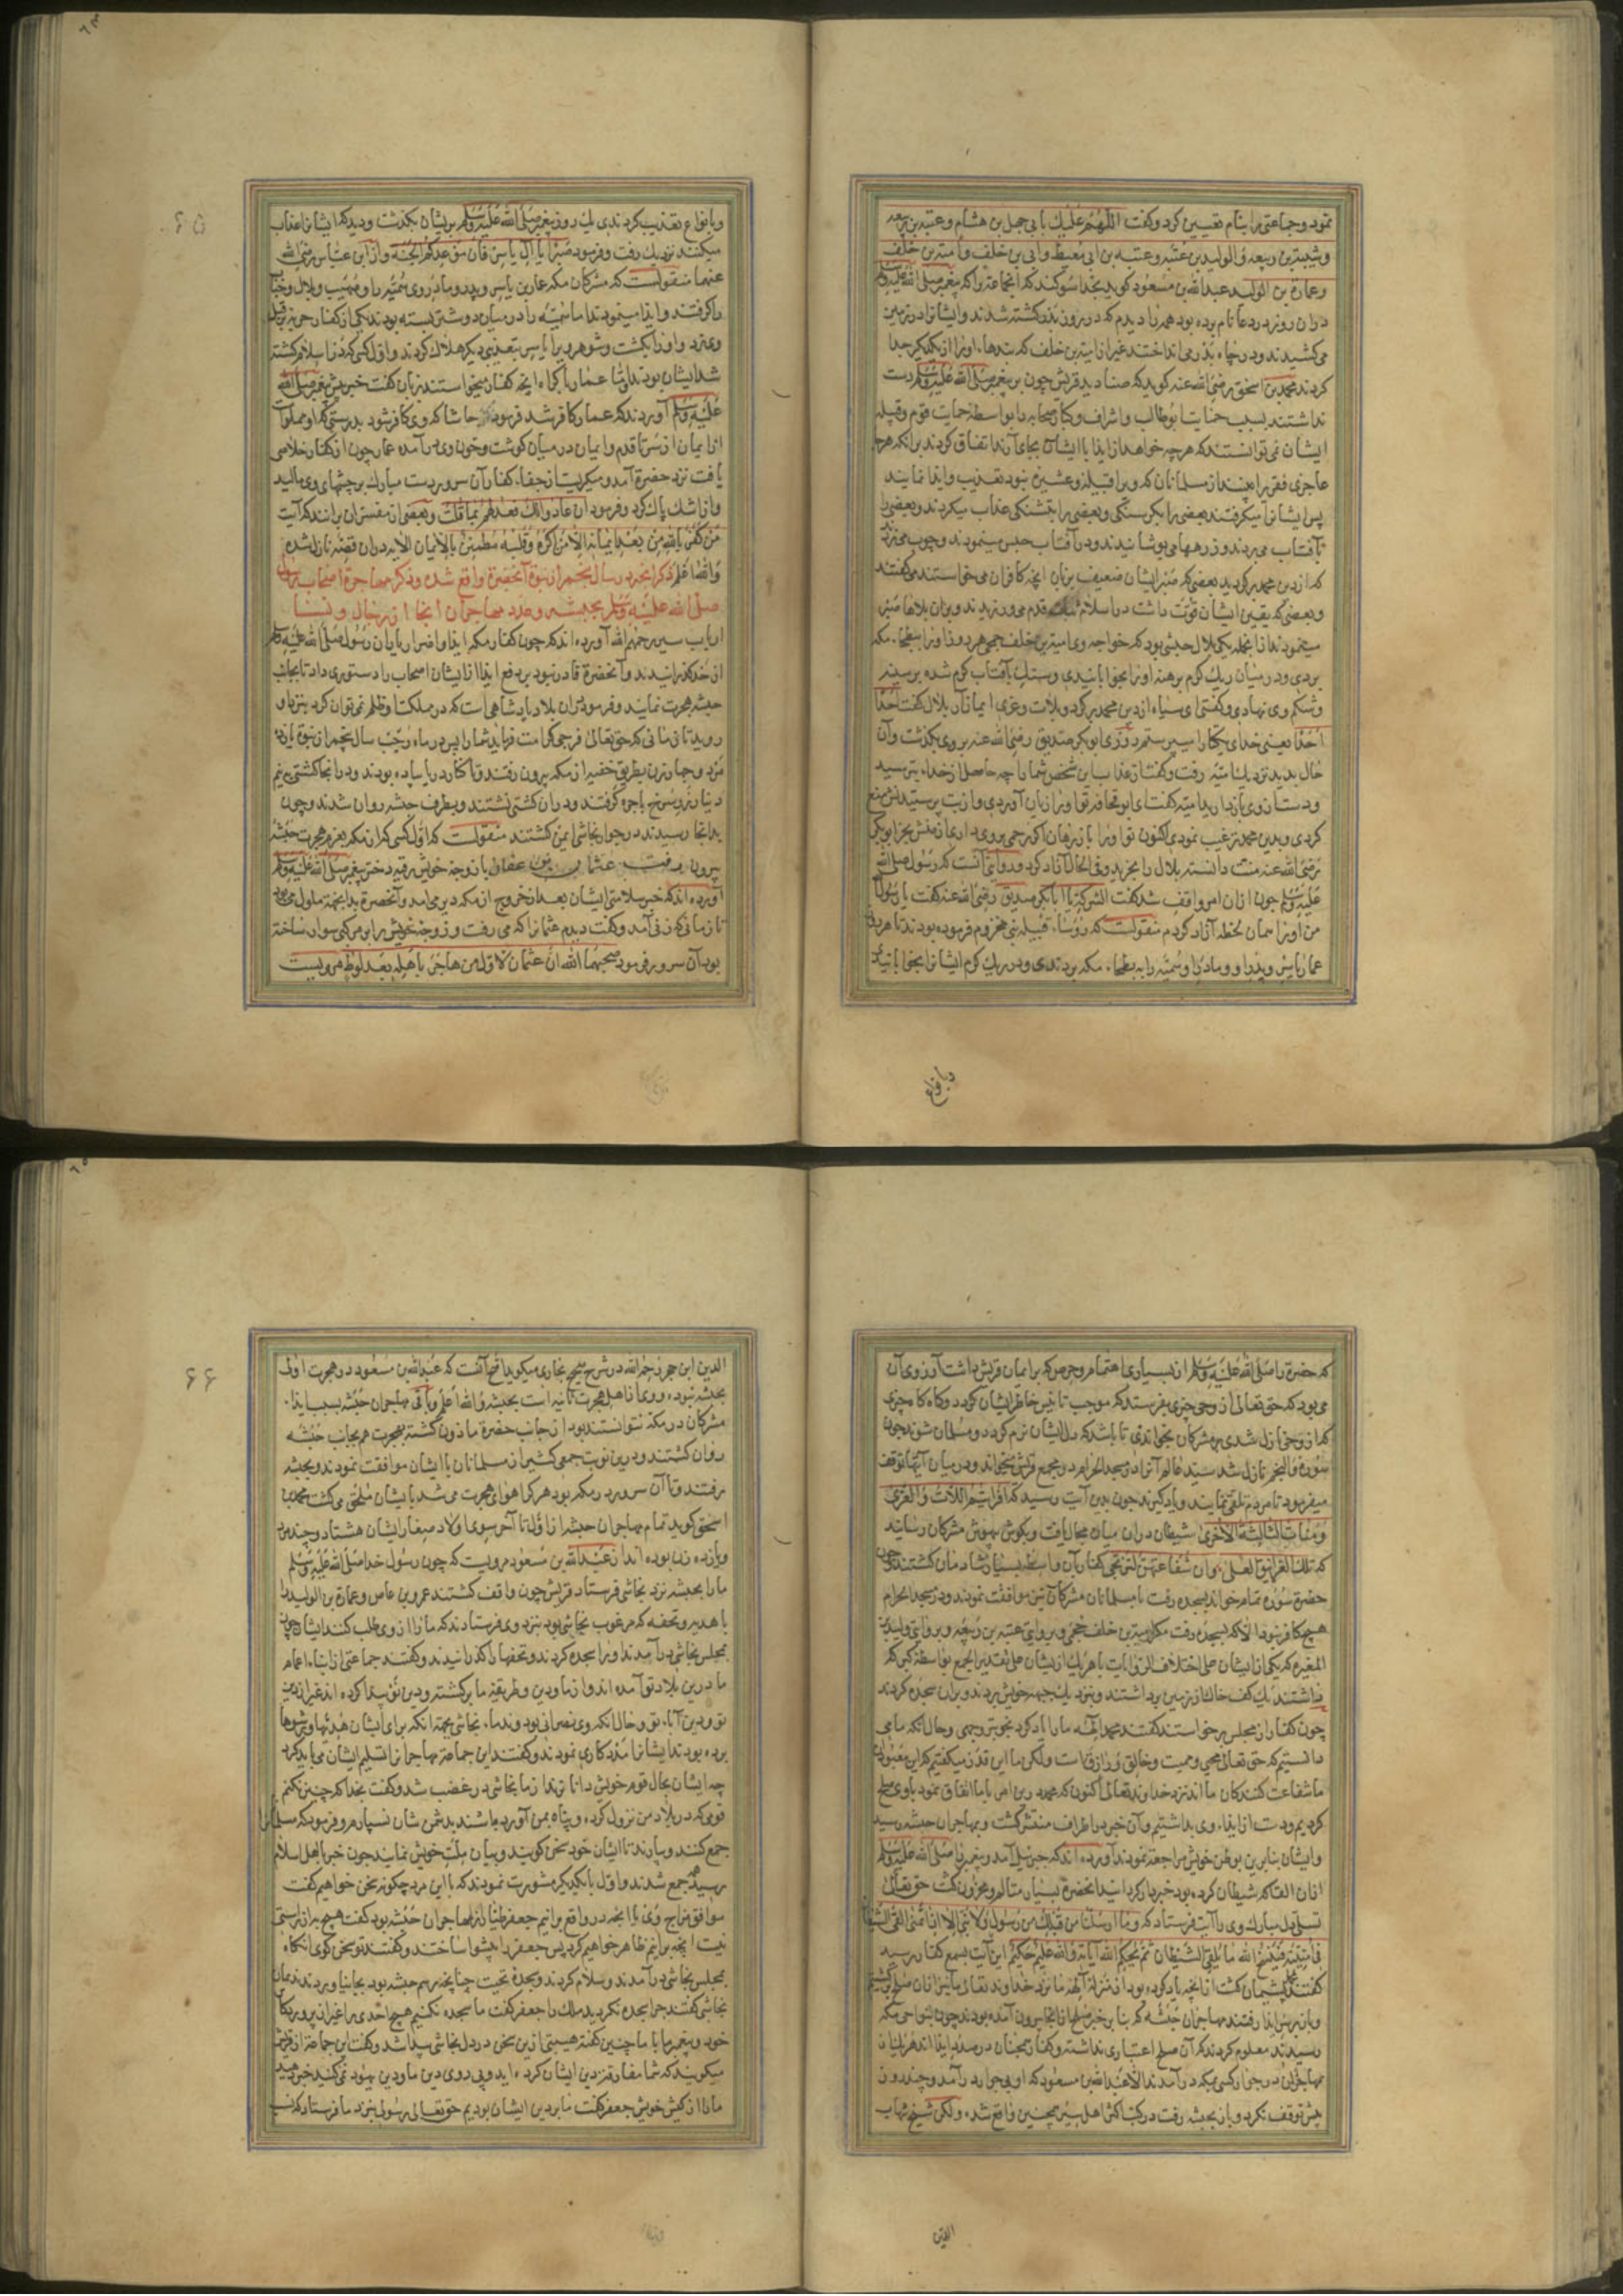 نمود و جماعتی را بنام تعیین کرد و گفت اللهم علیک بابی جهل بن هشام و عتبة بن ربیعه
و شیبة بن ربیعه و الولید بن عتبه و عقبه بن ابی معیط و ابی بن خلف و امیة بن خلف
و عمارة بن الولید عبد الله بن مسعود کوید بخدا سوکند که انجماعترا که پیغمبر صلی الله علیه وسلم
دران روز در دعا نام برده بود همه را دیدم که در روز بدر کشته شدند و ایشانرا در زمین
می کشیدند و در چاه بدر می انداختند غیر از امیة بن خلف که بندهاء او را از یکدیکر جدا
کردند محمد بن اسحق رضی الله عنه کوید که صنادید قریش چون بر پیغمبر صلی الله علیه وسلم دست
نداشتند بسبب حمایت ابو طالب و اشراف و کبار صحابه را بواسطه حمایت قوم و قبیله
ایشان نمی توانستند که هر چه خواهند از ایذا با ایشان بجای آرند اتفاق کردند برانکه هر جا
عاجزی فقیر را بینند از مسلمانان که ویرا قبیله و عشیره نبود تعذیب و ایذا نمایند
پس ایشانرا میکرفتند بعضی را بکرسنکی و بعضی را بتشنکی عذاب میکردند و بعضی را
بآفتاب می بردند و زرهها می پوشانیدند و در آفتاب حبس مینمودند و چوب می زدند
که از دین محمد برکردید بعضی که صبر ایشان ضعیف بزبان انچه کافران می خواستند می گفتند
و بعضی که یقین ایشان قوت داشت در اسلام ثبات قدم می ورزیدند و بران بلاها صبر
مینمودند ازانجمله یکی بلال حبشی بود که خواجه وی امیة بن خلف جمحی هر روز او را ببطحاء مکه
بردی و در میان ریک کرم برهنه او را بخوابانیدی و سنک بآفتاب کرم شده بر سینه
و شکم وی نهادی و گفتی ای سیاه از دین محمد برکرد و بلات و عزی ایمان آر بلال گفت احد
احد یعنی خدای یکتا را میپرستم روزی ابو بکر صدیق رضی الله عنه بر وی بگذشت و آن
حال بدید نزدیک امیه رفت و گفت از عذاب این شخص شما را چه حاصل از خداء بترسید
و دست از وی باز دارید امیه گفت ای ابو قحافه تو او را زیان آوردی و از بت پرستیدنش منع
کردی و بدین محمد ترغیب نمودی اکنون تو او را باز رهان اگر رحمی بر وی داری از منش بخر ابو بکر
رضی الله عنه منت دانسته بلال را بخرید و فی الحال آزاد کرد و روایتی آنست که رسول صلی الله
علیه وسلم چون ازان امر واقف شد گفت الشرکة یا ابا بکر صدیق رضی الله عنه گفت یا رسول الله
من او را همان لحظه آزاد کردم منقولست که رؤساء قبیله بنی مخزوم فرموده بودند تا هر روز
عمار یاسر و پدر او و مادر او سمیه را به بطحاء مکه بردندی و در ریک کرم ایشانرا بخوابانیدند
وبانواع
و بانواع تعذیب کردندی یک روز پیغمبر صلی الله علیه وسلم بر ایشان بگذشت و دید که ایشانرا عذاب
میکنند نزدیک رفت و فرمود صبرا یا آل یاسر فان موعدکم الجنة و از ابن عباس رضی الله
عنهما منقولست که مشرکان مکه عمار بن یاسر و پدر و مادر وی سمیه را و صهیب و بلال و خباب
را کرفتند و ایذا مینمودند اما سمیه را در میان دو شتر بسته بودند یکی از کفار حربه بر قبل
وی زد و او را بکشت و شوهر ویرا یاسر بتعذیبی دیکر هلاک کردند و اول کسی که در اسلام کشته
شد ایشان بودند و اما عمار با کراه انچه کفار میخواستند بزبان گفت خبر پیش پیغمبر صلی الله
علیه وسلم آوردند که عمار کافر شد فرمود حاشا که وی کافر شود بدرستی که او مملو است
از ایمان از سر تا قدم و ایمان در میان کوشت و خون وی در آمده عمار چون از کفار خلاصی
یافت نزد حضرة آمد و میکریست از جفاء کفار آن سرور دست مبارک بر چشمهای وی مالید
و از اشک پاک کرد و فرمود ان عادوا لک فعد لهم بما قلت و بعضی از مفسران برانند که آیت
من کفر بالله من بعد ایمانه الا من اکره و قلبه مطمئن بالایمان الایه دران قضه نازل شده
والله اعلم ذکر انچه در سال پنجم از نبوة آنحضرة واقع شده و ذکر مهاجرة اصحاب رسول
صلی الله علیه وسلم بحبشه و عدد مهاجران انجا از رجال و نسا
ارباب سیر رحمهم الله آورده اند که چون کفار مکه ایذا و اضرار یاران رسول صلی الله علیه وسلم
از حد کذرانیدند و آنحضرة قادر نبود بر دفع ایذا از ایشان اصحاب را دستوری داد تا بجانب
حبشه هجرت نمایند و فرمود دران بلاد پادشاهی است که در مملکت او ظلم نمی توان کرد بنزد او
روید تا زمانی که حق تعالی فرجی کرامت فرماید شما را پس در ماه رجب سال پنجم از نبوة یازده
مرد و چهار زن بطریق خفیه از مکه بیرون رفتند و تا کنار دریا پیاده بودند و در انجا کشتی به نیم
دینار زر سرخ باجره گرفتند و دران کشتی نشستند و بطرف حبشه روان شدند و چون
بدانجا رسیدند در جوار نجاشی ایمن کشتند منقولست که اول کسی که از مکه بعزم هجرت حبشه
بیرون رفت عثمان بن عفان با زوجه خویش رقیه دختر پیغمبر صلی الله علیه وسلم
آورده اند که خبر سلامتی ایشان بعد از خروج از مکه دیر می آمد و آنحضرة بدانجهة ملول می بود
تا زمانی که زنی آمد و گفت دیدم عثمانرا که می رفت و زوجه خویش را بر مرکبی سوار ساخته
بود آن سرور فرمود صحبهما الله ان عثمان لاول من هاجر باهله بعد لوط مرویست
۶۵
که حضرة را صلی الله علیه وسلم از بسیاری اهتمام و حرص که بر ایمان قریش داشت آرزوی آن
می بود که حق تعالی از وحی چیزی بفرستد که موجب تانیس خاطر ایشان کردد و کاه کاه چیزی
که از وحی نازل شدی بر مشرکان بخواندی تا باشد که دل ایشان نرم کردد و مسلمان شوند چون
سوره والنجم نازل شد سید عالم آنرا در مسجد الحرام در مجمع قریش بخواند و در میان آیتها توقف
میفرمود تا مردم تلقی نمایند و یاد گیرند چون بدین آیت رسید که افرایتم اللات والعزی
ومنات الثالثة الاخری شیطان دران میان مجال یافت و بکوش بیهوش مشرکان رسانید
که تلک الغرانیق العلی وان شفاعتهن لترتجی کفار بآن واسطه بسیار شادمان کشتند و چون
حضرة سوره تمام خواند بسجده رفت با مسلمانان مشرکان نیز موافقت نمودند و در مسجد الحرام
هیچ کافر نبود الا که بسجده رفت مکر امیة بن خلف جمحی و بروایتی عتبه بن ربیعه و بروایتی ولید بن
المغیره که یکی از ایشان علی اختلاف الروایات یا هر یک از ایشان علی تقدیر الجمع بواسطه کبری که
داشتند یک کف خاک از زمین برداشتند و بنزدیک جبهه خویش بردند و بران سجده کردند
چون کفار از مجلس برخواستند گفتند محمد الهه ما را یاد کرد بخوبتر وجهی و حال انکه ما می
دانستیم که حق تعالی محیی و ممیت و خالق و رازقست ولکن ما این قدر میگفتیم که این معبودان
ما شفاعت کنندکان ما اند نزد خداوند تعالی اکنون که محمد درین امر با ما اتفاق نمود با وی صلح
کردیم و دست از ایذاء وی بداشتیم و آن خبر در اطراف منتشر کشت و بمهاجران حبشه رسید
و ایشان بنابرین بوطن خویش مراجعة نمودند آورده اند که جبرئیل آمد و پیغمبر را صلی الله علیه وسلم
ازان القا که شیطان کرده بود خبردار کردانید انحضرة بسیار متالم و محزون کشت حق تعالی
تسلی دل مبارک وی را آیت فرستاد که وما ارسلنا من قبلک من رسول ولا نبی الا اذا تمنی القی الشیطان
فی امنیته فینسخ الله ما یلقی الشیطان ثم یحکم الله آیاته والله علیم حکیم این آیت بسمع کفار رسید
گفتند محمد پشیمان کشت از انچه یاد کرده بود از منزله الهه ما نزد خداوند تعالی ما نیز ازان صلح برکشتیم
و باز بر سر ایذا رفتند مهاجران حبشه که بنابر خبر صلح از انجا بیرون آمده بودند چون بنواحی مکه
رسیدند معلوم کردند که آن صلح اعتباری نداشته و کفار همچنان در صدد ایذا اند هر یک از
مهاجران در جوار کسی بمکه در آمدند الا عبد الله بن مسعود که او بی جوار در آمد و چند روز
بیش توقف نکرد و باز بحبشه رفت در کتب اکثر اهل سیر همچنین واقع شده ولکن شیخ شهاب
الدین
الدین ابن حجر رحمه الله در شرح صحیح بخاری میکوید اصح آنست که عبد الله بن مسعود در هجرت اولی
بحبشه نبوده و وی از اهل هجرت ثانیه است بحبشه والله اعلم و باقی مهاجران حبشه بسبب ایذاء
مشرکان در مکه نتوانستند بود از جانب حضرة ماذون کشته بهجرت هم بجانب حبشه
روان کشتند و درین نوبت جمعی کثیر از مسلمانان با ایشان موافقت نمودند و بحبشه
رفتند و تا آن سرور در مکه بود هر کرا هوای هجرت می شد بایشان ملحق می کشت محمد بن
اسحق کوید تمام مهاجران حبشه از اول تا آخر سوی اولاد صغار ایشان هشتاد و چند مرد
و یازده زن بوده اند از عبد الله بن مسعود مرویست که چون رسول خدا صلی الله علیه وسلم
ما را بحبشه نزد نجاشی فرستاد قریش چون واقف کشتند عمرو بن عاص و عمارة بن الولید را
با هدیه و تحفه که مرغوب نجاشی بود بنزد وی فرستادند که ما را از وی طلب کنند ایشان چون
بمجلس نجاشی در آمدند او را سجده کردند و تحفها را کذرانیدند و گفتند جماعتی از ابناء اعمام
ما درین بلاد تو آمده اند و از ما و دین و طریقه ما برکشته و دین نو پیدا کرده اند غیر از دین
تو و دین آباء تو و حال انکه وی نصرانی بود و ندماء نجاشی بجهة انکه برای ایشان هدیها و رشوها
برده بودند ایشانرا مددکاری نمودند و گفتند این جماعة مهاجرانرا تسلیم ایشان می باید کرد
چه ایشان بحال قوم خویش داناترند از ما نجاشی در غضب شد و گفت بخدا که چنین نکنم
قومی که در بلاد من نزول کرده و پناه بمن آورده باشند بدشمن شان نسپارم و فرمود که مسلمانانرا
جمع کنند و بیارند تا ایشان خود سخن کویند و بیان ملت خویش نمایند چون خبر باهل اسلام
رسید جمع شدند و اول با یکدیکر مشورت نمودند که با این مرد چکونه سخن خواهیم گفت
موافق مزاج وی یا انچه در واقع برانیم جعفر طیار از مهاجران حبشه بود گفت هیچ به از راستی
نیست انچه برانیم ظاهر خواهیم کرد پس جعفر را پیشوا ساختند و گفتند تو سخن کوی انکاه
بمجلس نجاشی در آمدند و سلام کردند و سجده تحیت چنانچه رسم حبشه بود بجا نیاوردند ندماء
نجاشی گفتند چرا سجده نکردید ملک را جعفر گفت ما سجده نکنیم هیچ احدی را غیر از پروردکار
خود و پیغمبر ما با ما چنین گفته هیبتی ازین سخن در دل نجاشی پیدا شد و گفت این جماعة از قریش
میکویند که شما مفارقت از دین ایشان کرده اید و پی روی دین ما و دین یهود نمی کنید خبر دهید
ما را از کیش خویش جعفر گفت ما بر دین ایشان بودیم حق تعالی رسولی بنزد ما فرستاد که نسب
۶۶